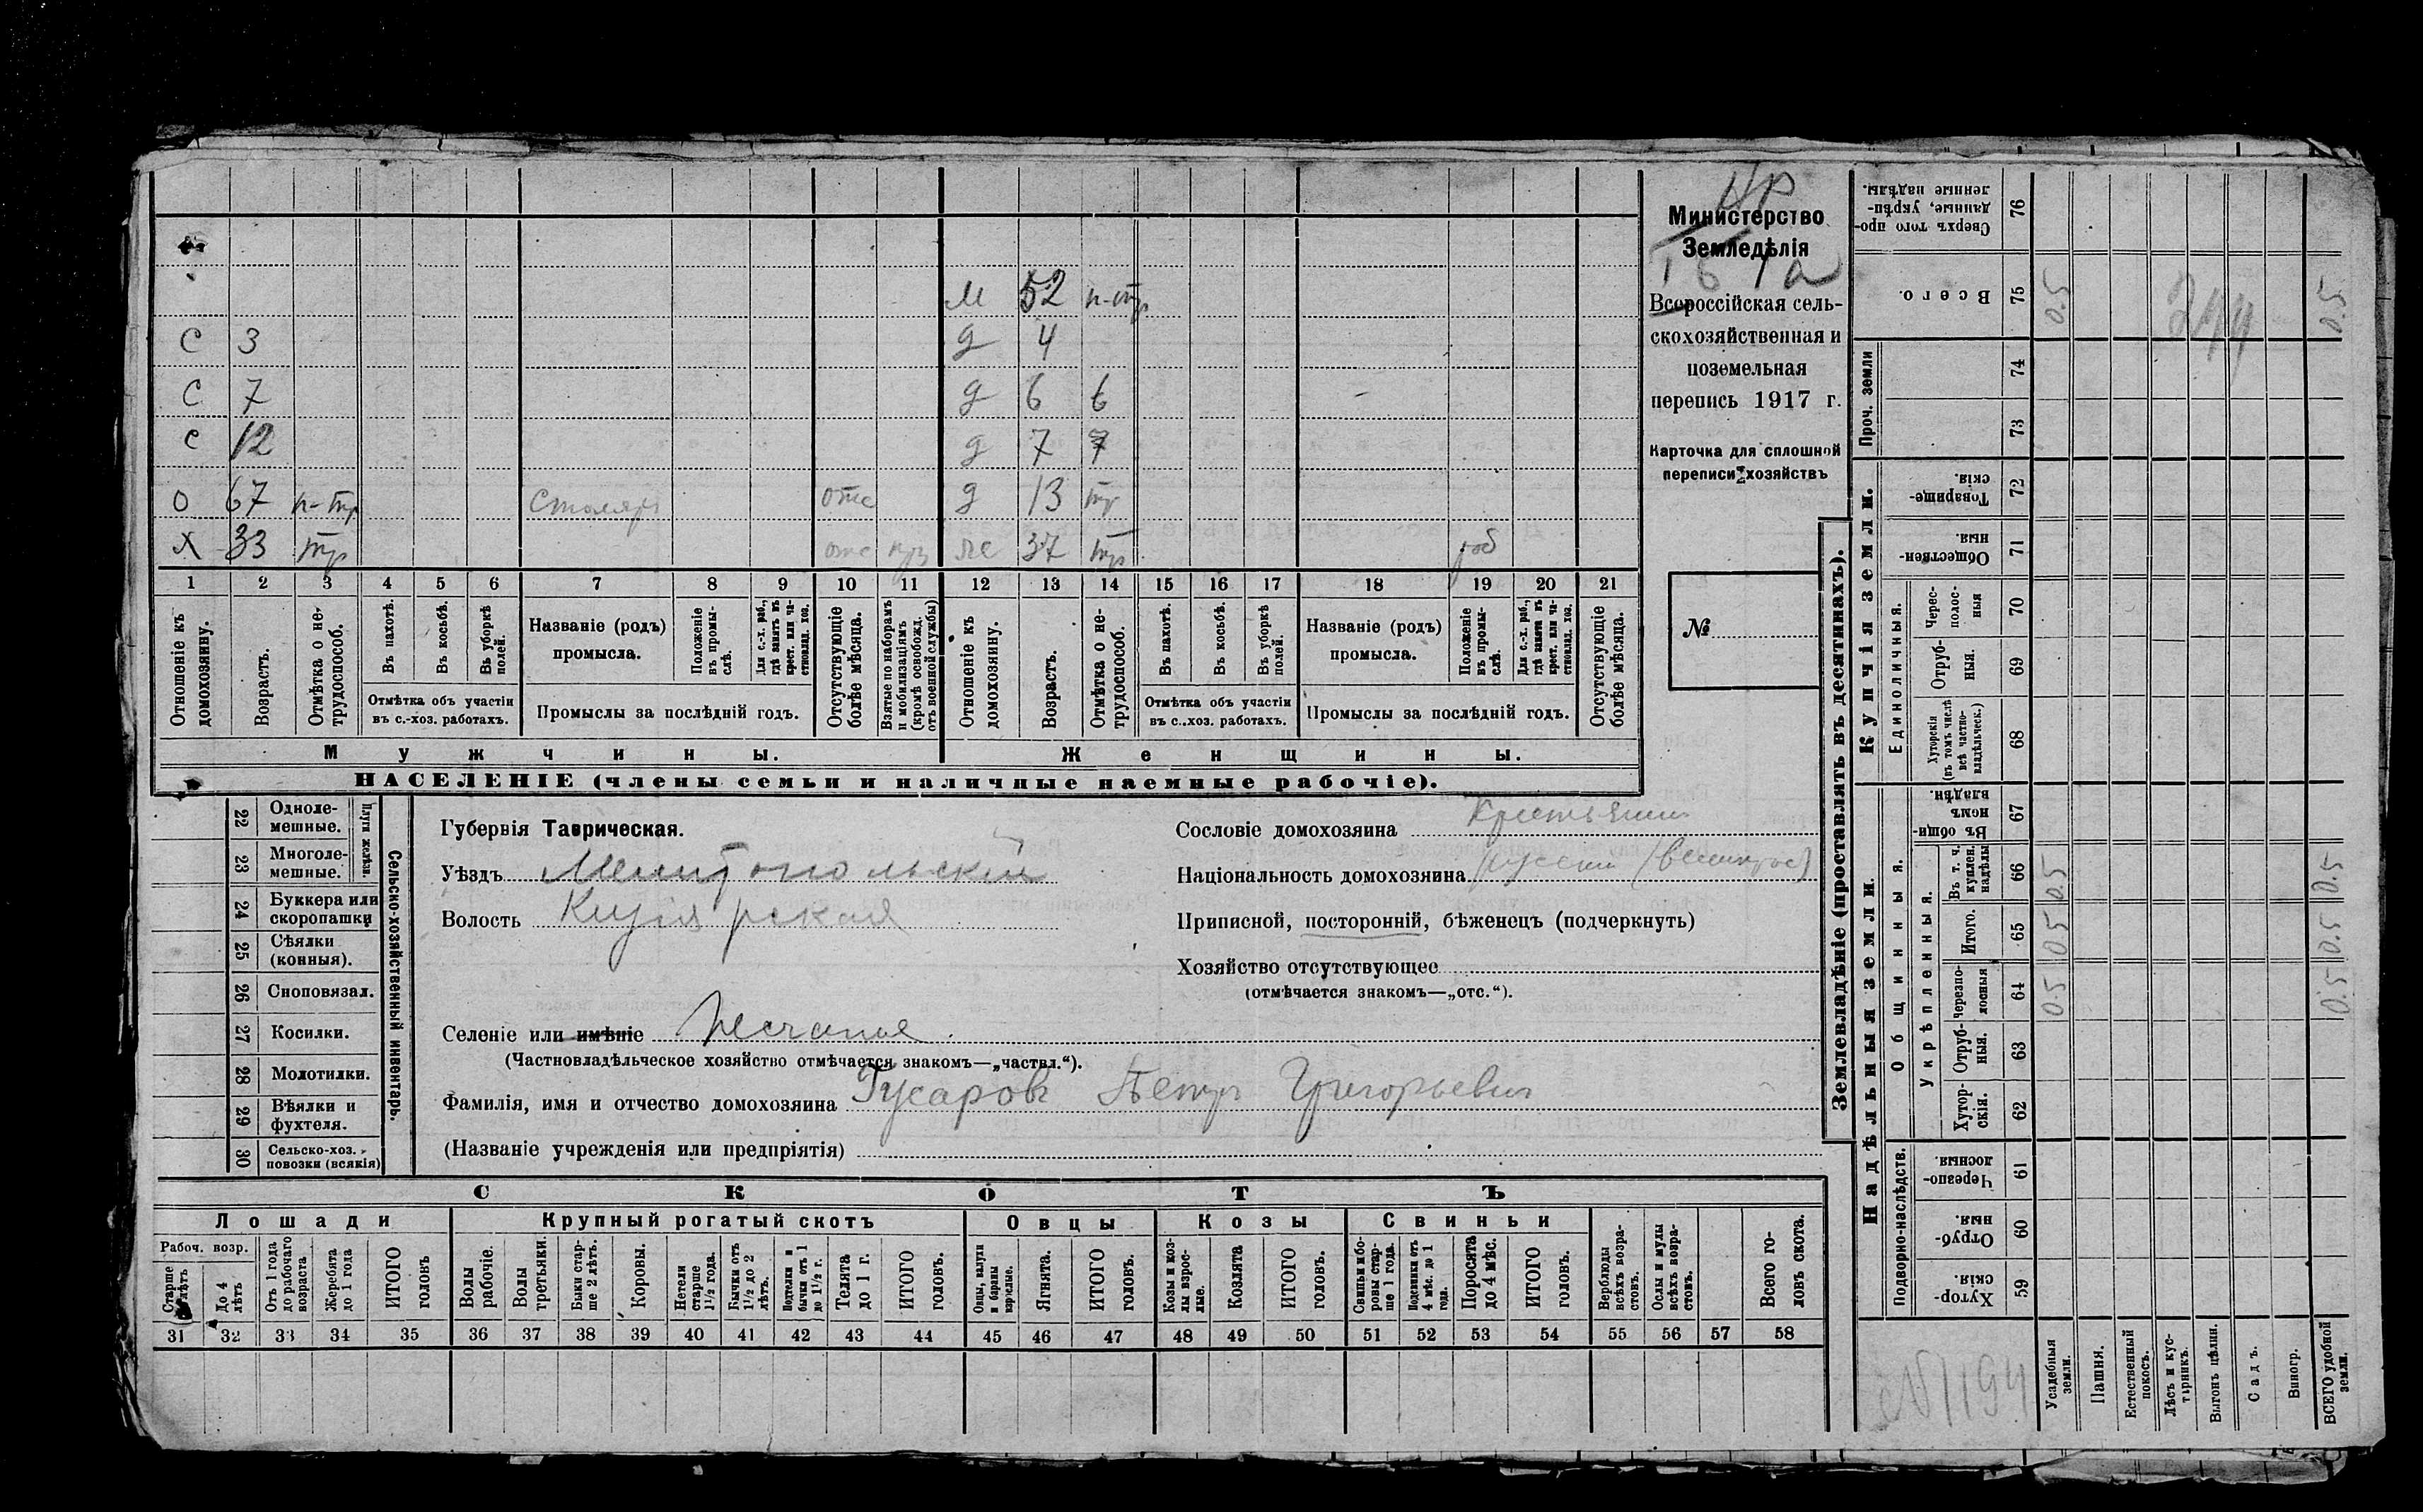 Нр
Министерство
Земледѣлія
1а
Всероссійская сель-
скохозяйственная и
поземельная
перепись 1917 г.
Карточка для сплошной
переписи хозяйствъ
№
М 52 п-тр
С 3 д 4
С 7 д 6 6
С 12 д 7 7
О 67 п-тр столяръ отс д 13 тр
Х 33 тр отс ж 37 тр
1 2 3 4 5 6 7 8 9 10 11 12 13 14 15 16 17 18 19 20 21
Отношеніе къ домохозяину.
Возрастъ.
Отмѣтка о не-трудоспособ.
Въ пахотѣ.
Въ косьбѣ.
Въ уборкѣ полей.
Отмѣтка объ участіи
въ с.-хоз. работахъ.
Названіе (родъ)
промысла.
Положеніе въ промы-слѣ.
Для с.-х. раб., гдѣ занятъ въ крест. или ча-стновлад. хоз.
Промыслы за послѣдній годъ.
Отсутствующіе болѣе мѣсяца.
Взятые по наборамъ и мобилизаціямъ (кромѣ освобожд. отъ военной службы)
Отношеніе къ домохозяину.
Возрастъ.
Отмѣтка о не-трудоспособ.
Въ пахотѣ.
Въ косьбѣ.
Въ уборкѣ полей.
Отмѣтка объ участіи
въ с.-хоз. работахъ.
Названіе (родъ)
промысла.
Положеніе въ промы-слѣ.
Для с.-х. раб., гдѣ занята въ крест. или ча-стновлад. хоз.
Промыслы за послѣдній годъ.
Отсутствующіе болѣе мѣсяца.
Мужчины. Женщины.
НАСЕЛЕНІЕ (члены семьи и наличные наемные рабочіе).
22 Одноле-мешные.
23 Многоле-мешные.
Плуги желѣзн.
24 Буккера или скоропашки
25 Сѣялки (конныя).
26 Сноповязал.
27 Косилки.
28 Молотилки.
29 Вѣялки и фухтеля.
30 Сельско-хоз. повозки (всякія)
Сельско-хозяйственный инвентарь.
Губернія Таврическая.
Уѣздъ Мелитопольскій
Волость Кизіярская
Селеніе или имѣніе Песчаное
(Частновладѣльческое хозяйство отмѣчается знакомъ—„частвл.“).
Фамилія, имя и отчество домохозяина Гусаровъ Петръ Григорьевич
(Названіе учрежденія или предпріятія)
Сословіе домохозяина Крестьянин
Національность домохозяина русский (великорос)
Приписной, посторонній, бѣженецъ (подчеркнуть)
Хозяйство отсутствующее
(отмѣчается знакомъ—„отс.“).
СКОТЪ
Лошади Крупный рогатый скотъ Овцы Козы Свиньи
Рабоч. возр.
Старше 4 лѣтъ
До 4 лѣтъ
Отъ 1 года до рабочаго возраста
Жеребята до 1 года
ИТОГО головъ
Волы рабочіе.
Волы третьяки.
Быки стар-ше 2 лѣтъ.
Коровы.
Нетели старше 1½ года.
Бычки отъ 1½ до 2 лѣтъ.
Подтелки и бычки отъ 1 до 1½ г.
Телята до 1 г.
ИТОГО головъ.
Овцы, валухи и бараны взрослые.
Ягнята.
ИТОГО головъ.
Козы и коз-лы взрос-лые.
Козлята
ИТОГО головъ.
Свиньи и бо-ровы стар-ше 1 года.
Подсвинки отъ 4 мѣс. до 1 года.
Поросята до 4 мѣс.
ИТОГО головъ.
Верблюды всѣхъ возра-стовъ.
Ослы и мулы всѣхъ возра-стовъ.
Всего го-ловъ скота.
31 32 33 34 35 36 37 38 39 40 41 42 43 44 45 46 47 48 49 50 51 52 53 54 55 56 57 58
Землевладѣніе (проставлять въ десятинахъ).
Сверхъ того про-данные, укрѣп-ленные надѣлы. 76
Всего. 75 0.5 244 0.5
Проч. земли 74
73
Купчія земли.
Товарище-скія 72
Обществен-ныя 71
Единоличныя.
Черес-полос-ныя 70
Отруб-ныя. 69
Хуторскія (въ томъ числѣ всѣ частно-владѣльческ.) 68
Надѣльныя земли.
Общинныя.
Въ общи-номъ владѣн. 67
Укрѣпленныя.
Въ т. ч. куплен. надѣлы 66 0.5 0.5
Итого. 65 0.5 0.5
черезпо-лосныя 64 0.5 0.5
Отруб-ныя. 63
Хутор-скія. 62
Подворно-наслѣдств.
Черезпо-лосныя. 61
Отруб-ныя. 60
Хутор-скія. 59
№1194
Усадебныя земли.
Пашня.
Естественный покосъ.
Лѣсъ и кус-тарникъ.
Выгонъ цѣлин.
Садъ.
Виногр.
ВСЕГО удобной земли.